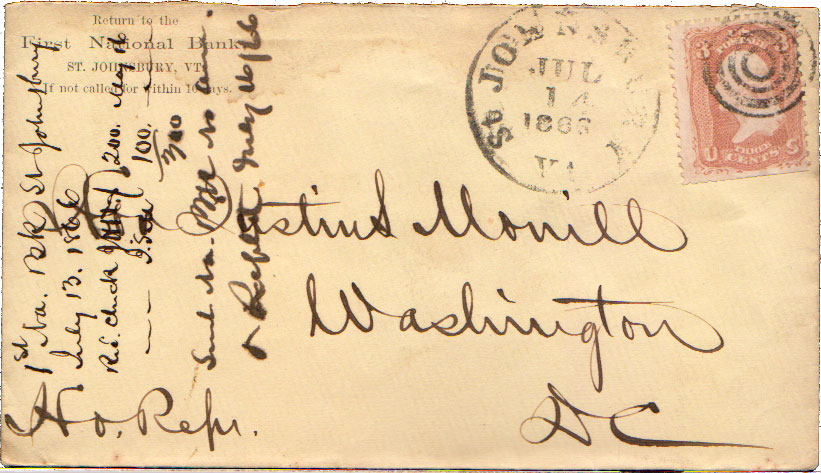 Return to the
First National Bank
ST. JOHNSBURY, VT.
If not called for within 10 days.
St. JOHNSBURY
JUL
14
1866
VT.
3 3
U THREE S
CENTS
Hon Justin S Morrill
Washington
DC
Ho. Repr.
1st Na. Bk St Johnsbury
July 13. 1866
Rec. Check 200.
100.
300
Send No.
& Replied July 16/66